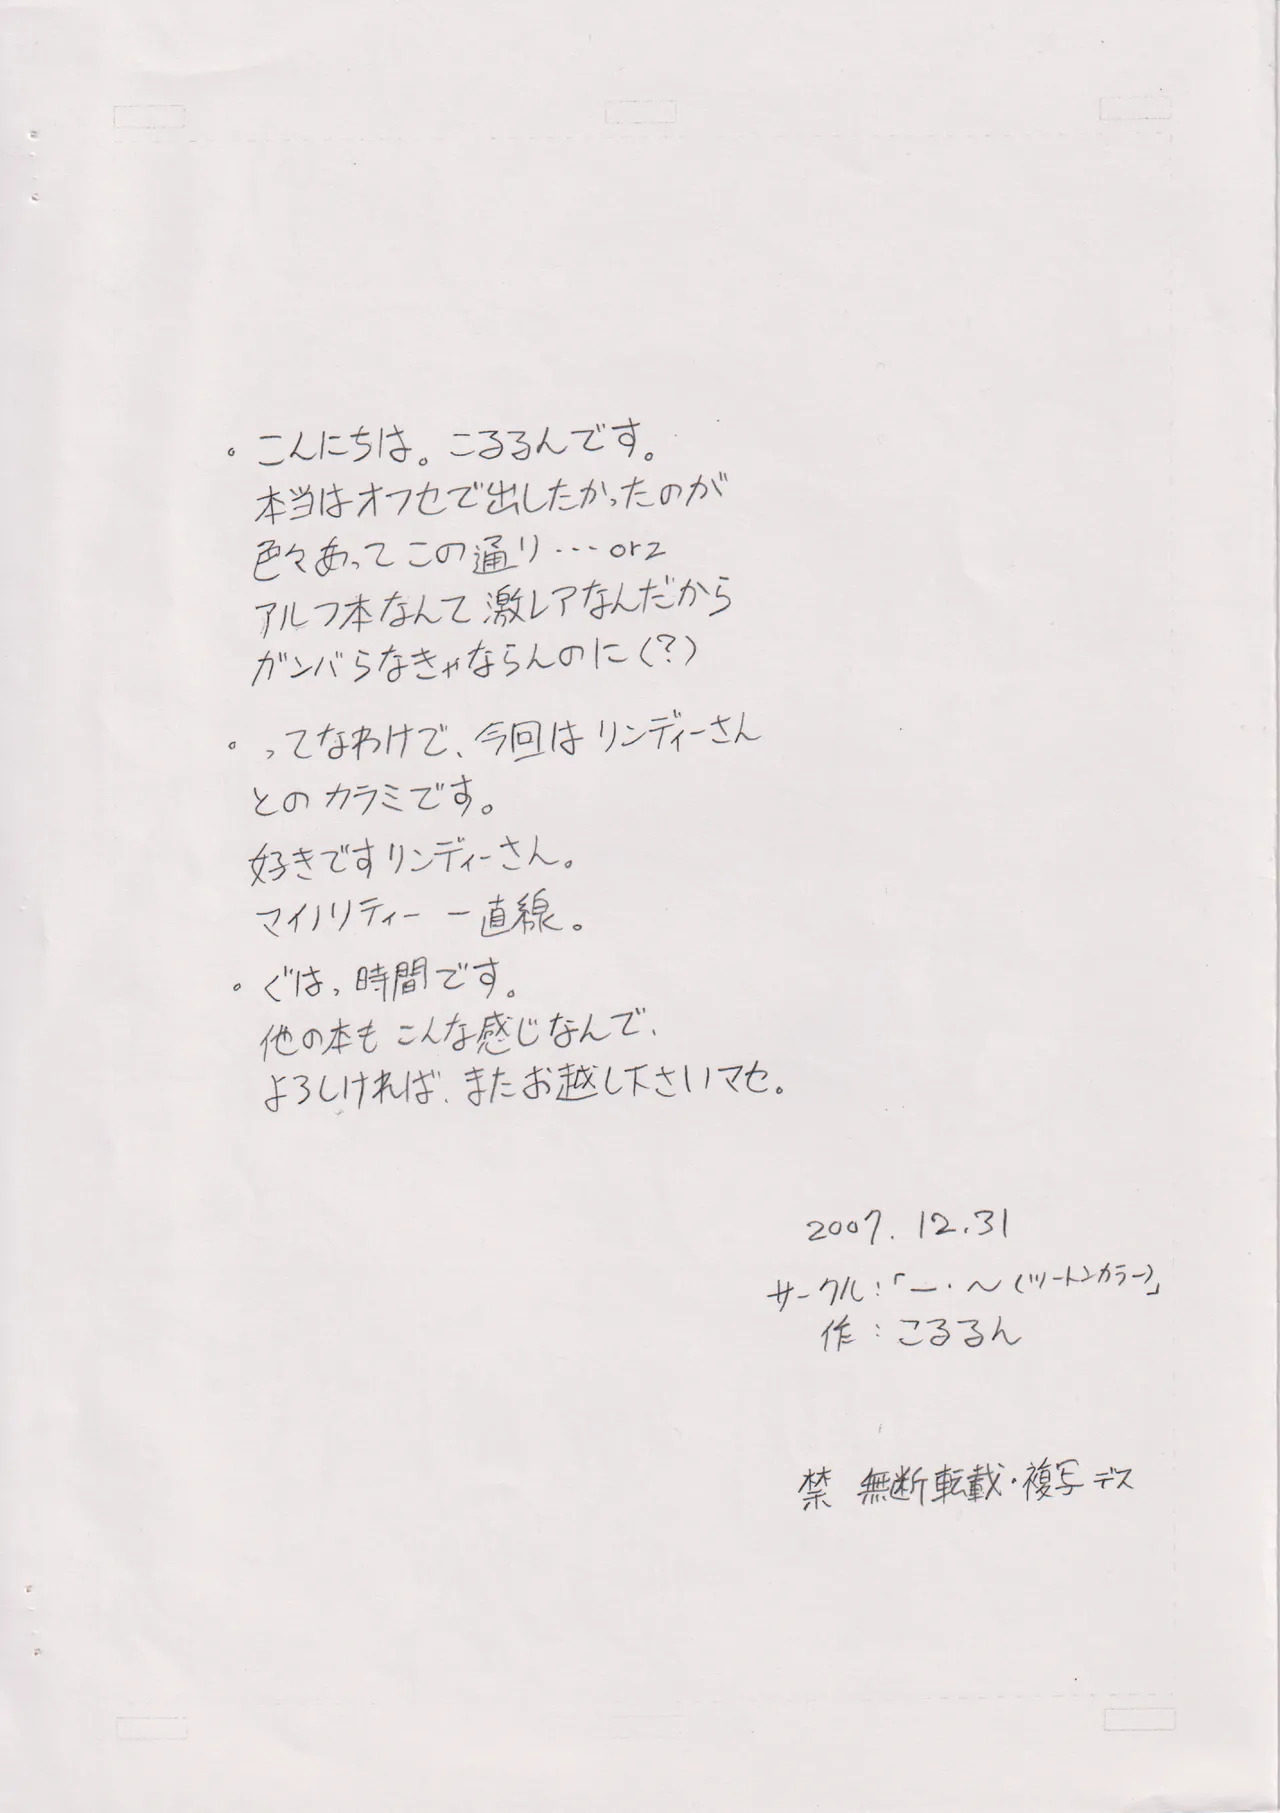 ・こんにちは。こるるんです。
本当はオフセで出したかったのが
色々あってこの通り…orz
アルフ本なんて激レアなんだから
ガンバらなきゃならんのに(?)
・ってなわけで、今回はリンディーさん
とのカラミです。
好きですリンディーさん。
マイノリティー一直線。
・ぐはっ、時間です。
他の本もこんな感じなんで、
よろしければ、またお越し下さいマセ。
2007.12.31
サークル:「一・〜(ツートンカラー)」
作:こるるん
禁 無断転載・複写デス